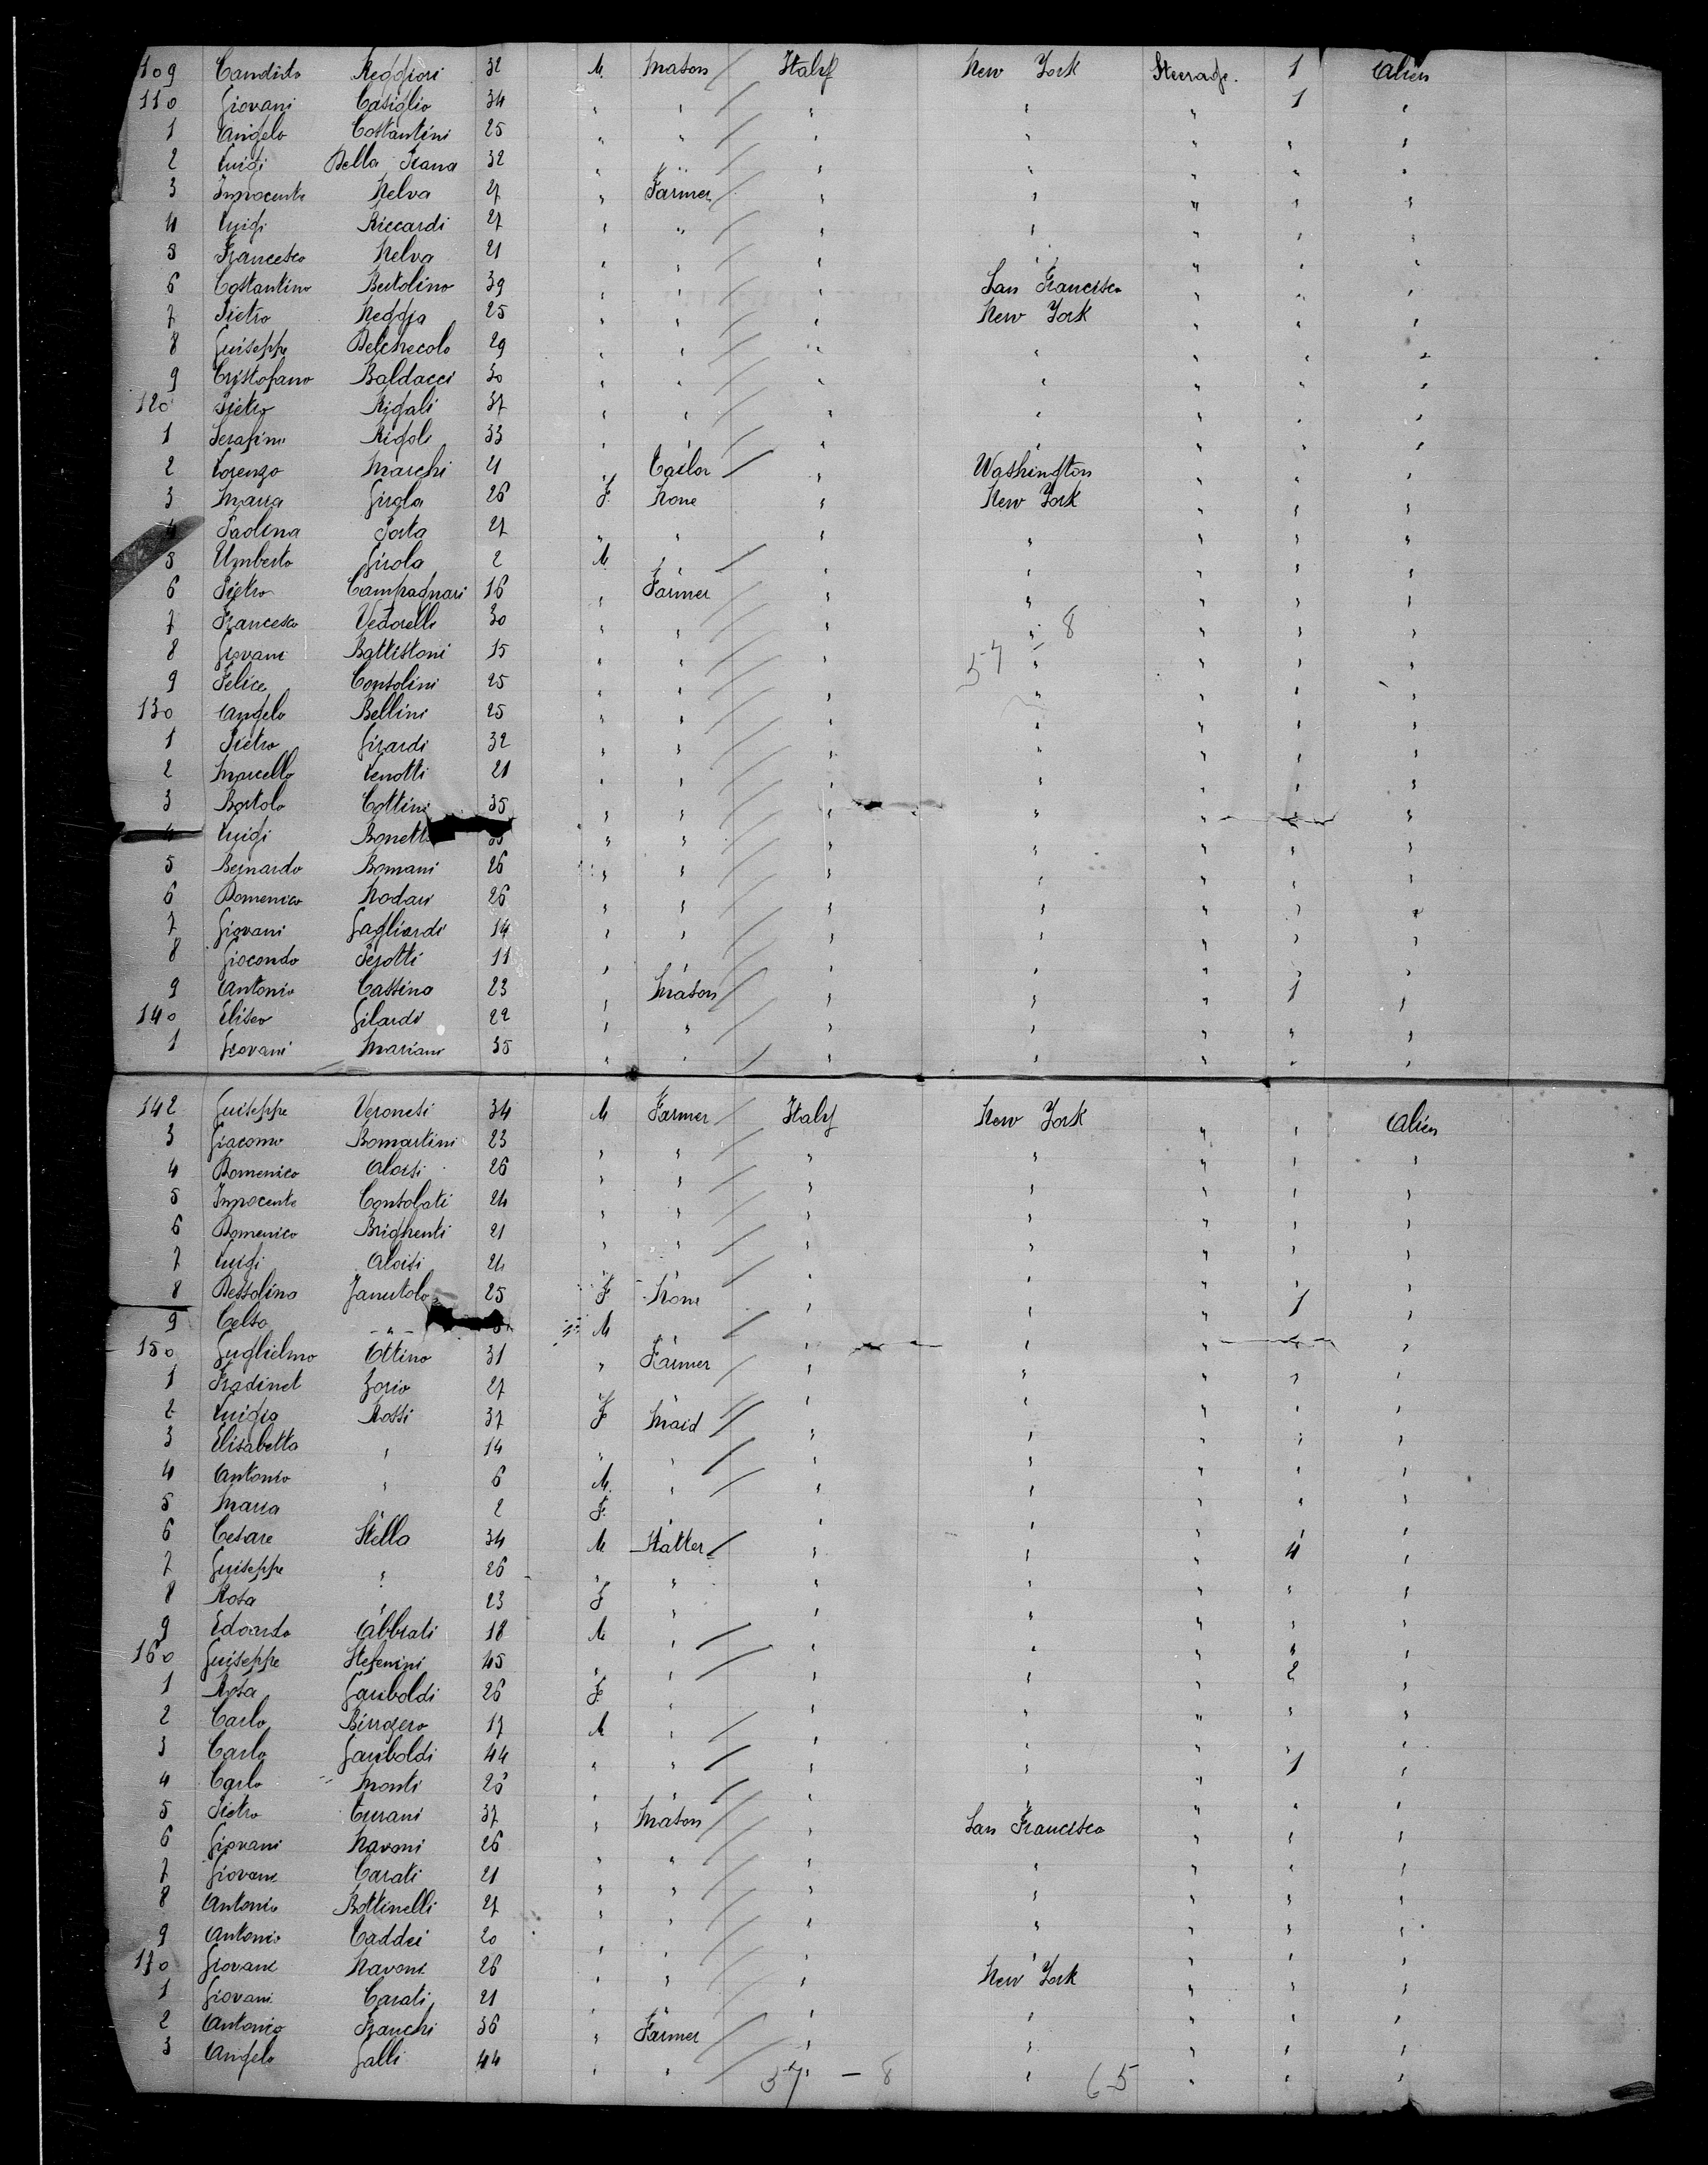 109 Candido Reggiori 32 M. Mason / Italy New York Steerage. 1 Alien
110 Giovani Casiglio 34 " " / " " " 1 "
1 Angelo Costantini 25 " " / " " " " "
2 Luigi Della 32 " " / " " " " "
3 Innocente Melva 27 " Farmer / " " " " "
4 Luigi Riccardi 27 " " / " " " " "
5 Francesco Melva 21 " " / " " " " "
6 Costantino Bertolino 39 " " / " San Francisco " " "
7 Pietro 25 " " / " New York " " "
8 Guiseppe Delchecolo 29 " " / " " " " "
9 Cristofano Baldacci 30 " " / " " " " "
120 Pietro Rigali 37 " " / " " " " "
1 Serafino Rigoli 33 " " / " " " " "
2 Lorenzo Marchi 21 " Tailor / " Washington " " "
3 Maria Girola 26 F. None " New York " " "
4 Paolina Porta 27 " " " " " " "
5 Umberto Girola 2 M. " / " " " " "
6 Pietro Campagnari 16 " Farmer / " " " " "
7 Francesco Vedorelli 30 " " / " " 8 " " "
8 Giovani Battistoni 15 " " / " 57 " " " "
9 Felice Consolini 25 " " / " " " " "
130 Angelo Bellini 25 " " / " " " " "
1 Pietro Girardi 32 " " / " " " " "
2 Marcello Venotti 21 " " / " " " " "
3 Bortolo Cottini 35 " " / " " " " "
4 Luigi Bonetti " " / " " " " "
5 Bernardo Bomani 26 " " / " " " " "
6 Domenico Nodari 26 " " / " " " " "
7 Giovani Gagliardi 14 " " / " " " " "
8 Giocondo Perotti 11 " " / " " " " "
9 Antonio Cassina 23 " Mason / " " " 1 "
140 Eliseo Gilardi 22 " " / " " " " "
1 Giovani Mariani 35 " " / " " " " "
142 Guiseppe Veronesi 34 M Farmer / Italy New York " " Alien
3 Giacomo Bomartini 23 " " / " " " " "
4 Domenico Aloisi 26 " " / " " " " "
5 Innocente Consolati 24 " " / " " " " "
6 Domenico Brighenti 21 " " / " " " " "
7 Luigi Aloisi 24 " " / " " " " "
8 Dessolina Janutolo 25 F None " " " 1 "
9 Celso " M " / " " " " "
150 Guglielmo Ottino 31 " Farmer / " " " " "
1 Fradinet Zorio 27 " " / " " " " "
2 Luigia Rossi 37 F Maid / " " " " "
3 Elisabetta " 14 " " / " " " " "
4 Antonio " 6 M. " / " " " " "
5 Maria " 2 F. " " " " " "
6 Cesare Stella 34 M Hatter / " " " 4 "
7 Guiseppe " 26 " " " " " " "
8 Rosa " 23 F " " " " " "
9 Edoardo Abbiati 18 M " / " " " " "
160 Guiseppe Stefenini 45 " " / " " " 2 "
1 Rosa Gariboldi 26 F " " " " " "
2 Carlo Birrozero 17 M " / " " " " "
3 Carlo Gariboldi 44 " " / " " " 1 "
4 Carlo Monti 26 " " / " " " " "
5 Pietro Turani 37 " Mason / " San Francisco " " "
6 Giovani Navoni 26 " " / " " " " "
7 Giovani Carati 21 " " / " " " " "
8 Antonio Bottinelli 27 " " / " " " " "
9 Antonio Taddei 20 " " / " " " " "
170 Giovani Navoni 26 " " / " New York " " "
1 Giovani Carati 21 " " / " " " " "
2 Antonio Franchi 36 " Farmer / " " " " "
3 Angelo Galli 44 " " / " " " " "
57 — 8 65